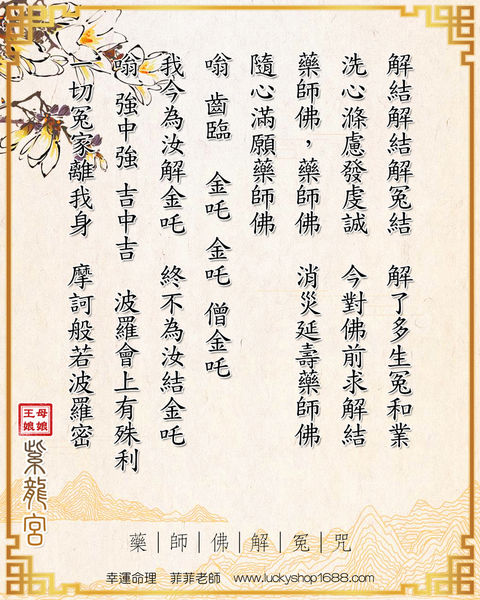 解結解結解冤結　解了多生冤和業
洗心滌慮發虔誠　今對佛前求解結
藥師佛，藥師佛　消災延壽藥師佛
隨心滿願藥師佛
嗡　齒臨　金吒　金吒　僧金吒
我今為汝解金吒　終不為汝結金吒
嗡　強中強　吉中吉　波羅會上有殊利
一切冤家離我身　摩訶般若波羅密
母娘
王娘
紫龍宮
藥｜師｜佛｜解｜冤｜咒
幸運命理　菲菲老師　www.luckyshop1688.com